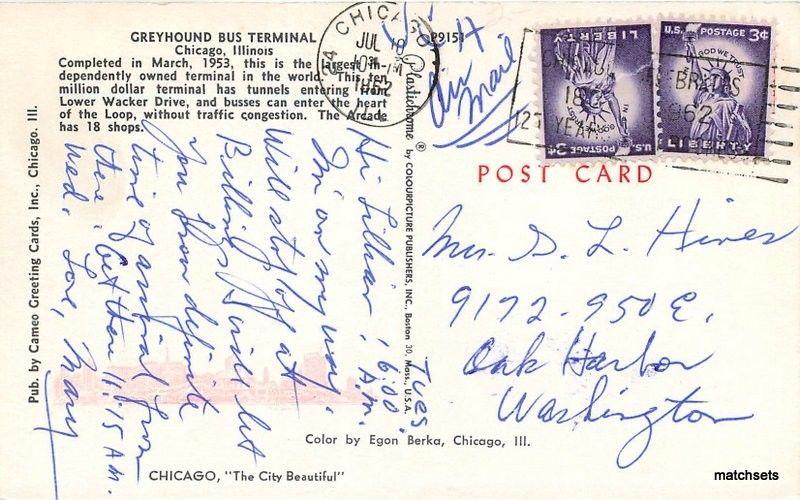 GREYHOUND BUS TERMINAL
Chicago, Illinois
Completed in March, 1953, this is the largest in-
dependently owned terminal in the world. This ten
million dollar terminal has tunnels entering from
Lower Wacker Drive, and busses can enter the heart
of the Loop, without traffic congestion. The Arcade
has 18 shops.
P9153
CHICAGO
JUL 10
1962
Air Mail
U.S. POSTAGE 3¢
IN GOD WE TRUST
LIBERTY
U.S. POSTAGE 3¢
IN GOD WE TRUST
LIBERTY
CELEBRATES
1962
125 YEARS
POST CARD
Pub. by Cameo Greeting Cards, Inc., Chicago. Ill.
Plastichrome ® by COLOURPICTURE PUBLISHERS, INC., Boston 30, Mass., U.S.A.
Tues.
6:00 A.M.
Hi Lillian!
I'm on my way.
Will stop off at
Billings & will let
you know definite
time of arrival from
there. Get there 11:15 AM.
Wed. Love, Mary
Mrs. G. L. Hines
9172-950 E.
Oak Harbor
Washington
Color by Egon Berka, Chicago, Ill.
CHICAGO, "The City Beautiful"
matchsets